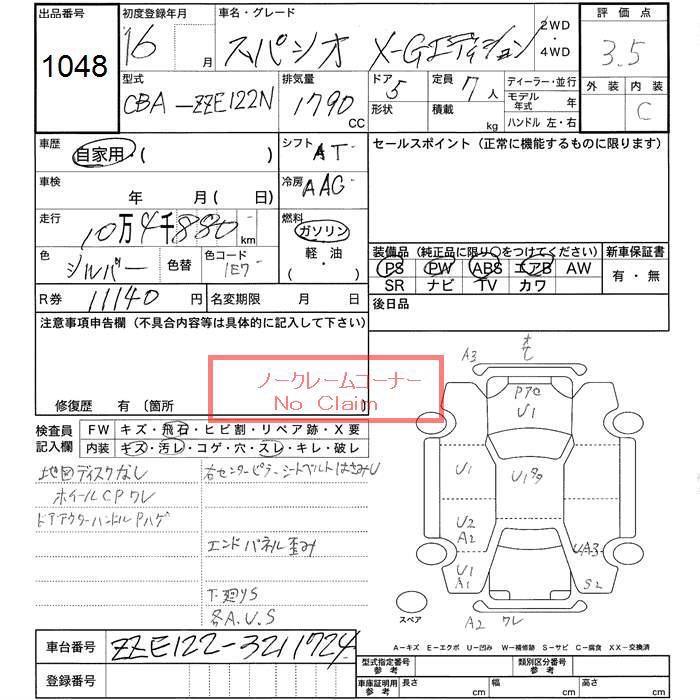 出品番号
1048
初度登録年月
16 月
車名・グレード
スパシオ X-Gエディション
2WD
4WD
評価点
3.5
外装 内装
C
型式
CBA-ZZE122N
排気量
1790 CC
ドア 5
形状
定員 7 人
積載 kg
ディーラー・並行
モデル年式 年
ハンドル 左・右
車歴
自家用・( )
シフト AT
セールスポイント(正常に機能するものに限ります)
車検
年 月( 日)
冷房 AAC
走行
10万4千880 km
燃料
ガソリン
軽・油
( )
色
シルバー
色替
色コード
1E7
装備品(純正品に限り○をつけてください)
新車保証書
PS PW ABS エアB AW
SR ナビ TV カワ
有・無
R券 11140 円
名変期限 月 日
後日品
注意事項申告欄(不具合内容等は具体的に記入して下さい)
ノークレームコーナー
No Claim
修復歴 有 〔箇所
検査員
記入欄
FW キズ・飛石・ヒビ割・リペア跡・X要
内装 キズ・汚レ・コゲ・穴・スレ・キレ・破レ
地図ディスクなし
ホイールCPワレ
ドアアウターハンドルPハゲ
右センターピラーシートベルトはさみU
エンドパネル歪み
下廻りS
各A.U.S
A3
U1
U1
U1
U2
A2
U1
A1
UA3
S2
A2 ワレ
スペア
A-キズ E-エクボ U-凹み W-補修跡 S-サビ C-腐食 XX-交換済
車台番号 ZZE122-3211724
登録番号
型式指定番号
参考
類別区分番号
参考
車庫証明用
参考
長さ cm
幅 cm
高さ cm